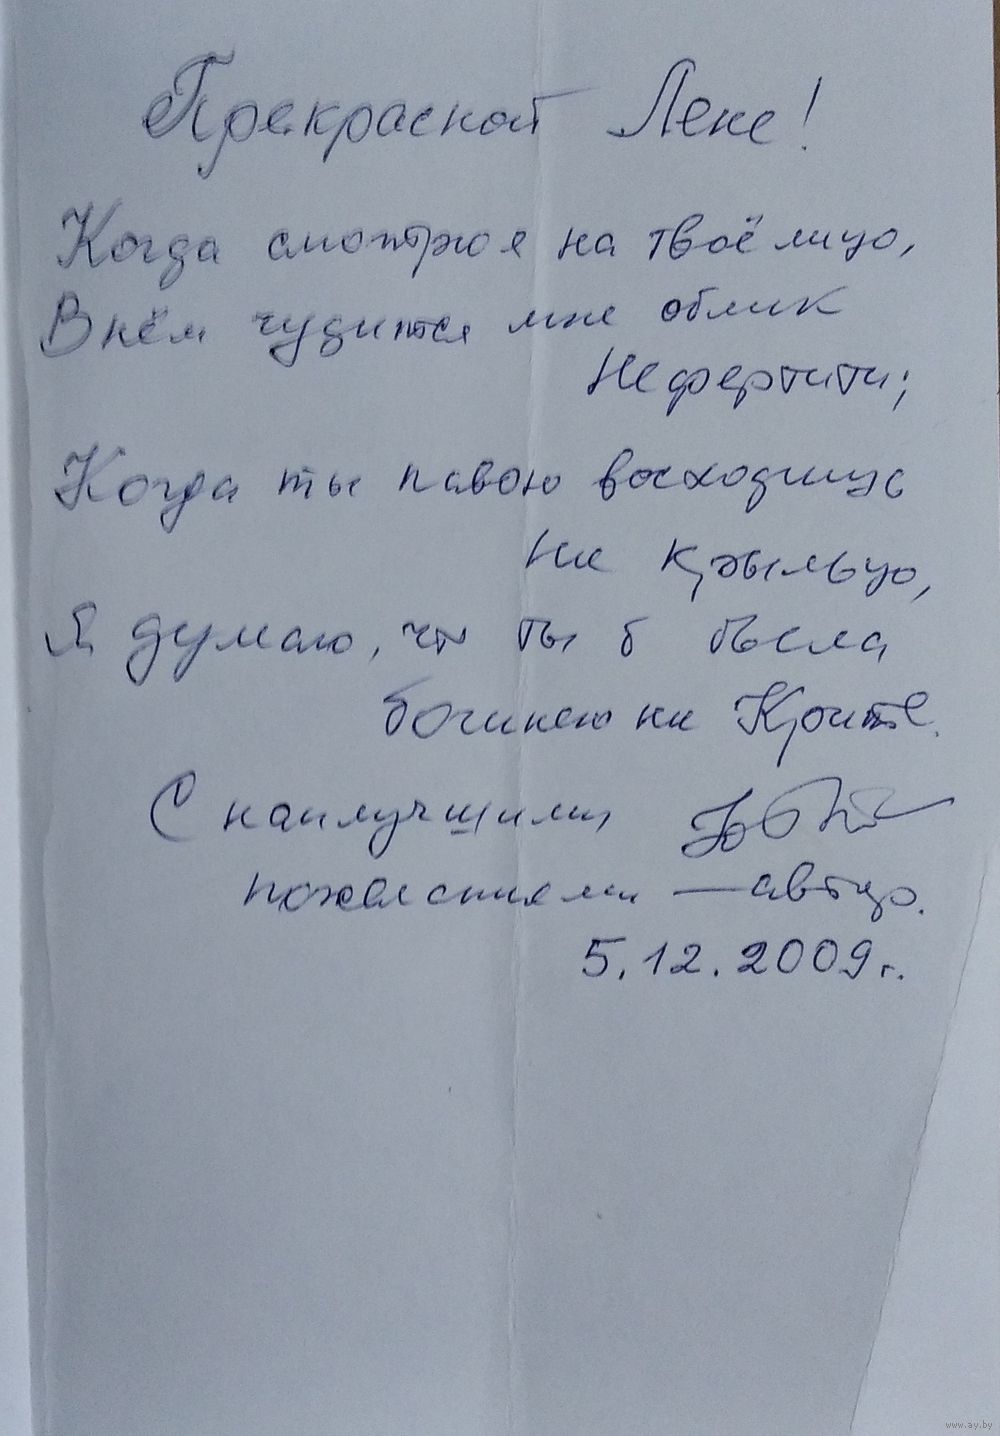 Прекрасной Лене!
Когда смотрю я на твоё лицо,
В нём чудится мне облик
Нефертити;
Когда ты павою восходишь
на крыльцо,
Я думаю, что ты б была
богинею на Крите.
С наилучшими
пожеланиями — автор.
5.12.2009г.
www.ay.by